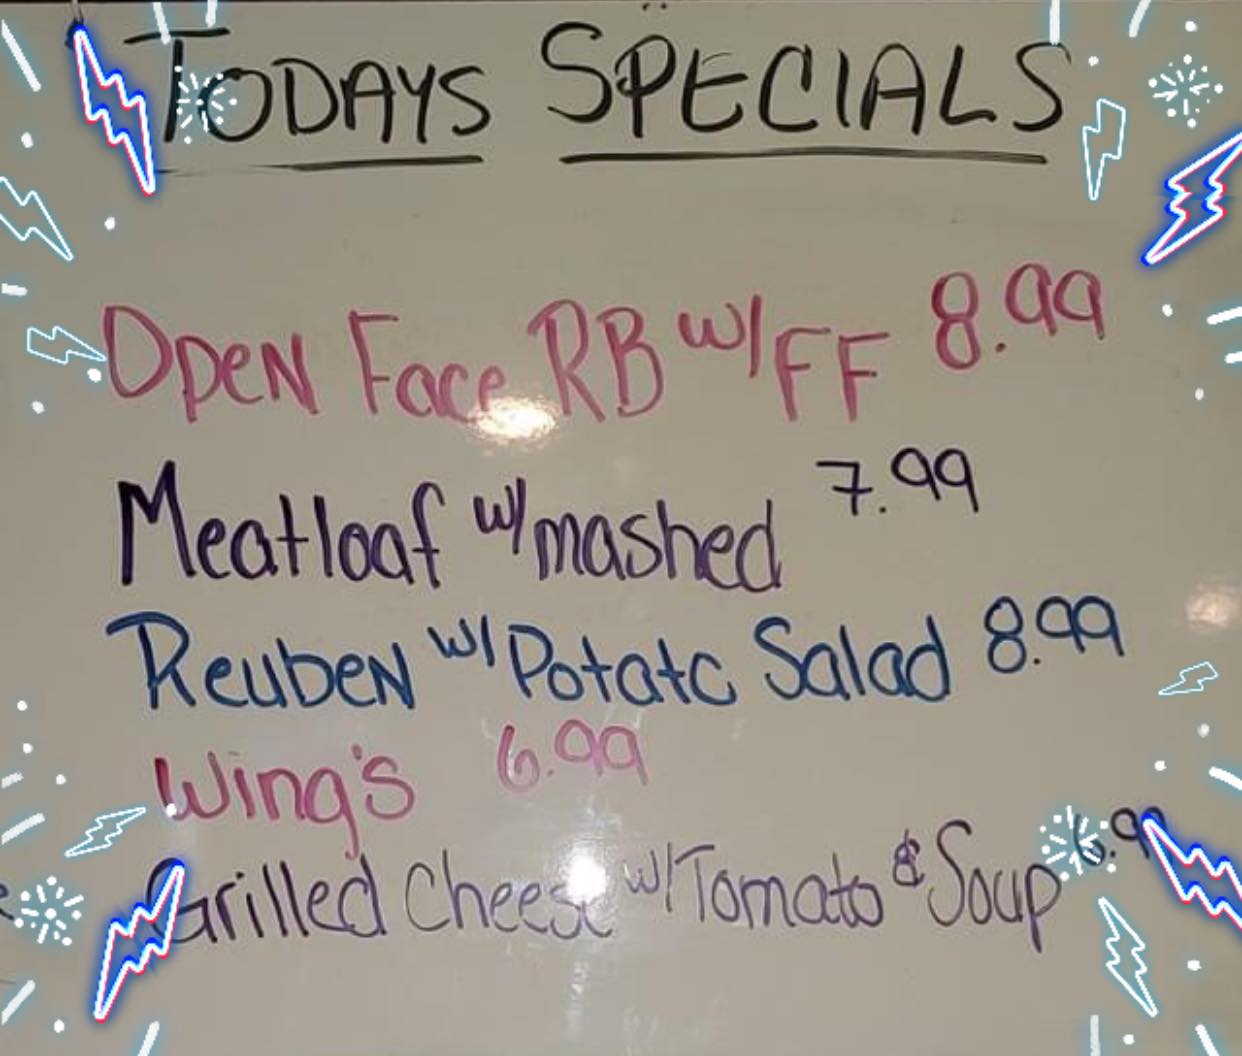 TODAYS SPECIALS
Open Face RB w/ FF 8.99
Meatloaf w/ mashed 7.99
Reuben w/ Potato Salad 8.99
Wing's 6.99
Grilled Cheese w/ Tomato & Soup 6.99